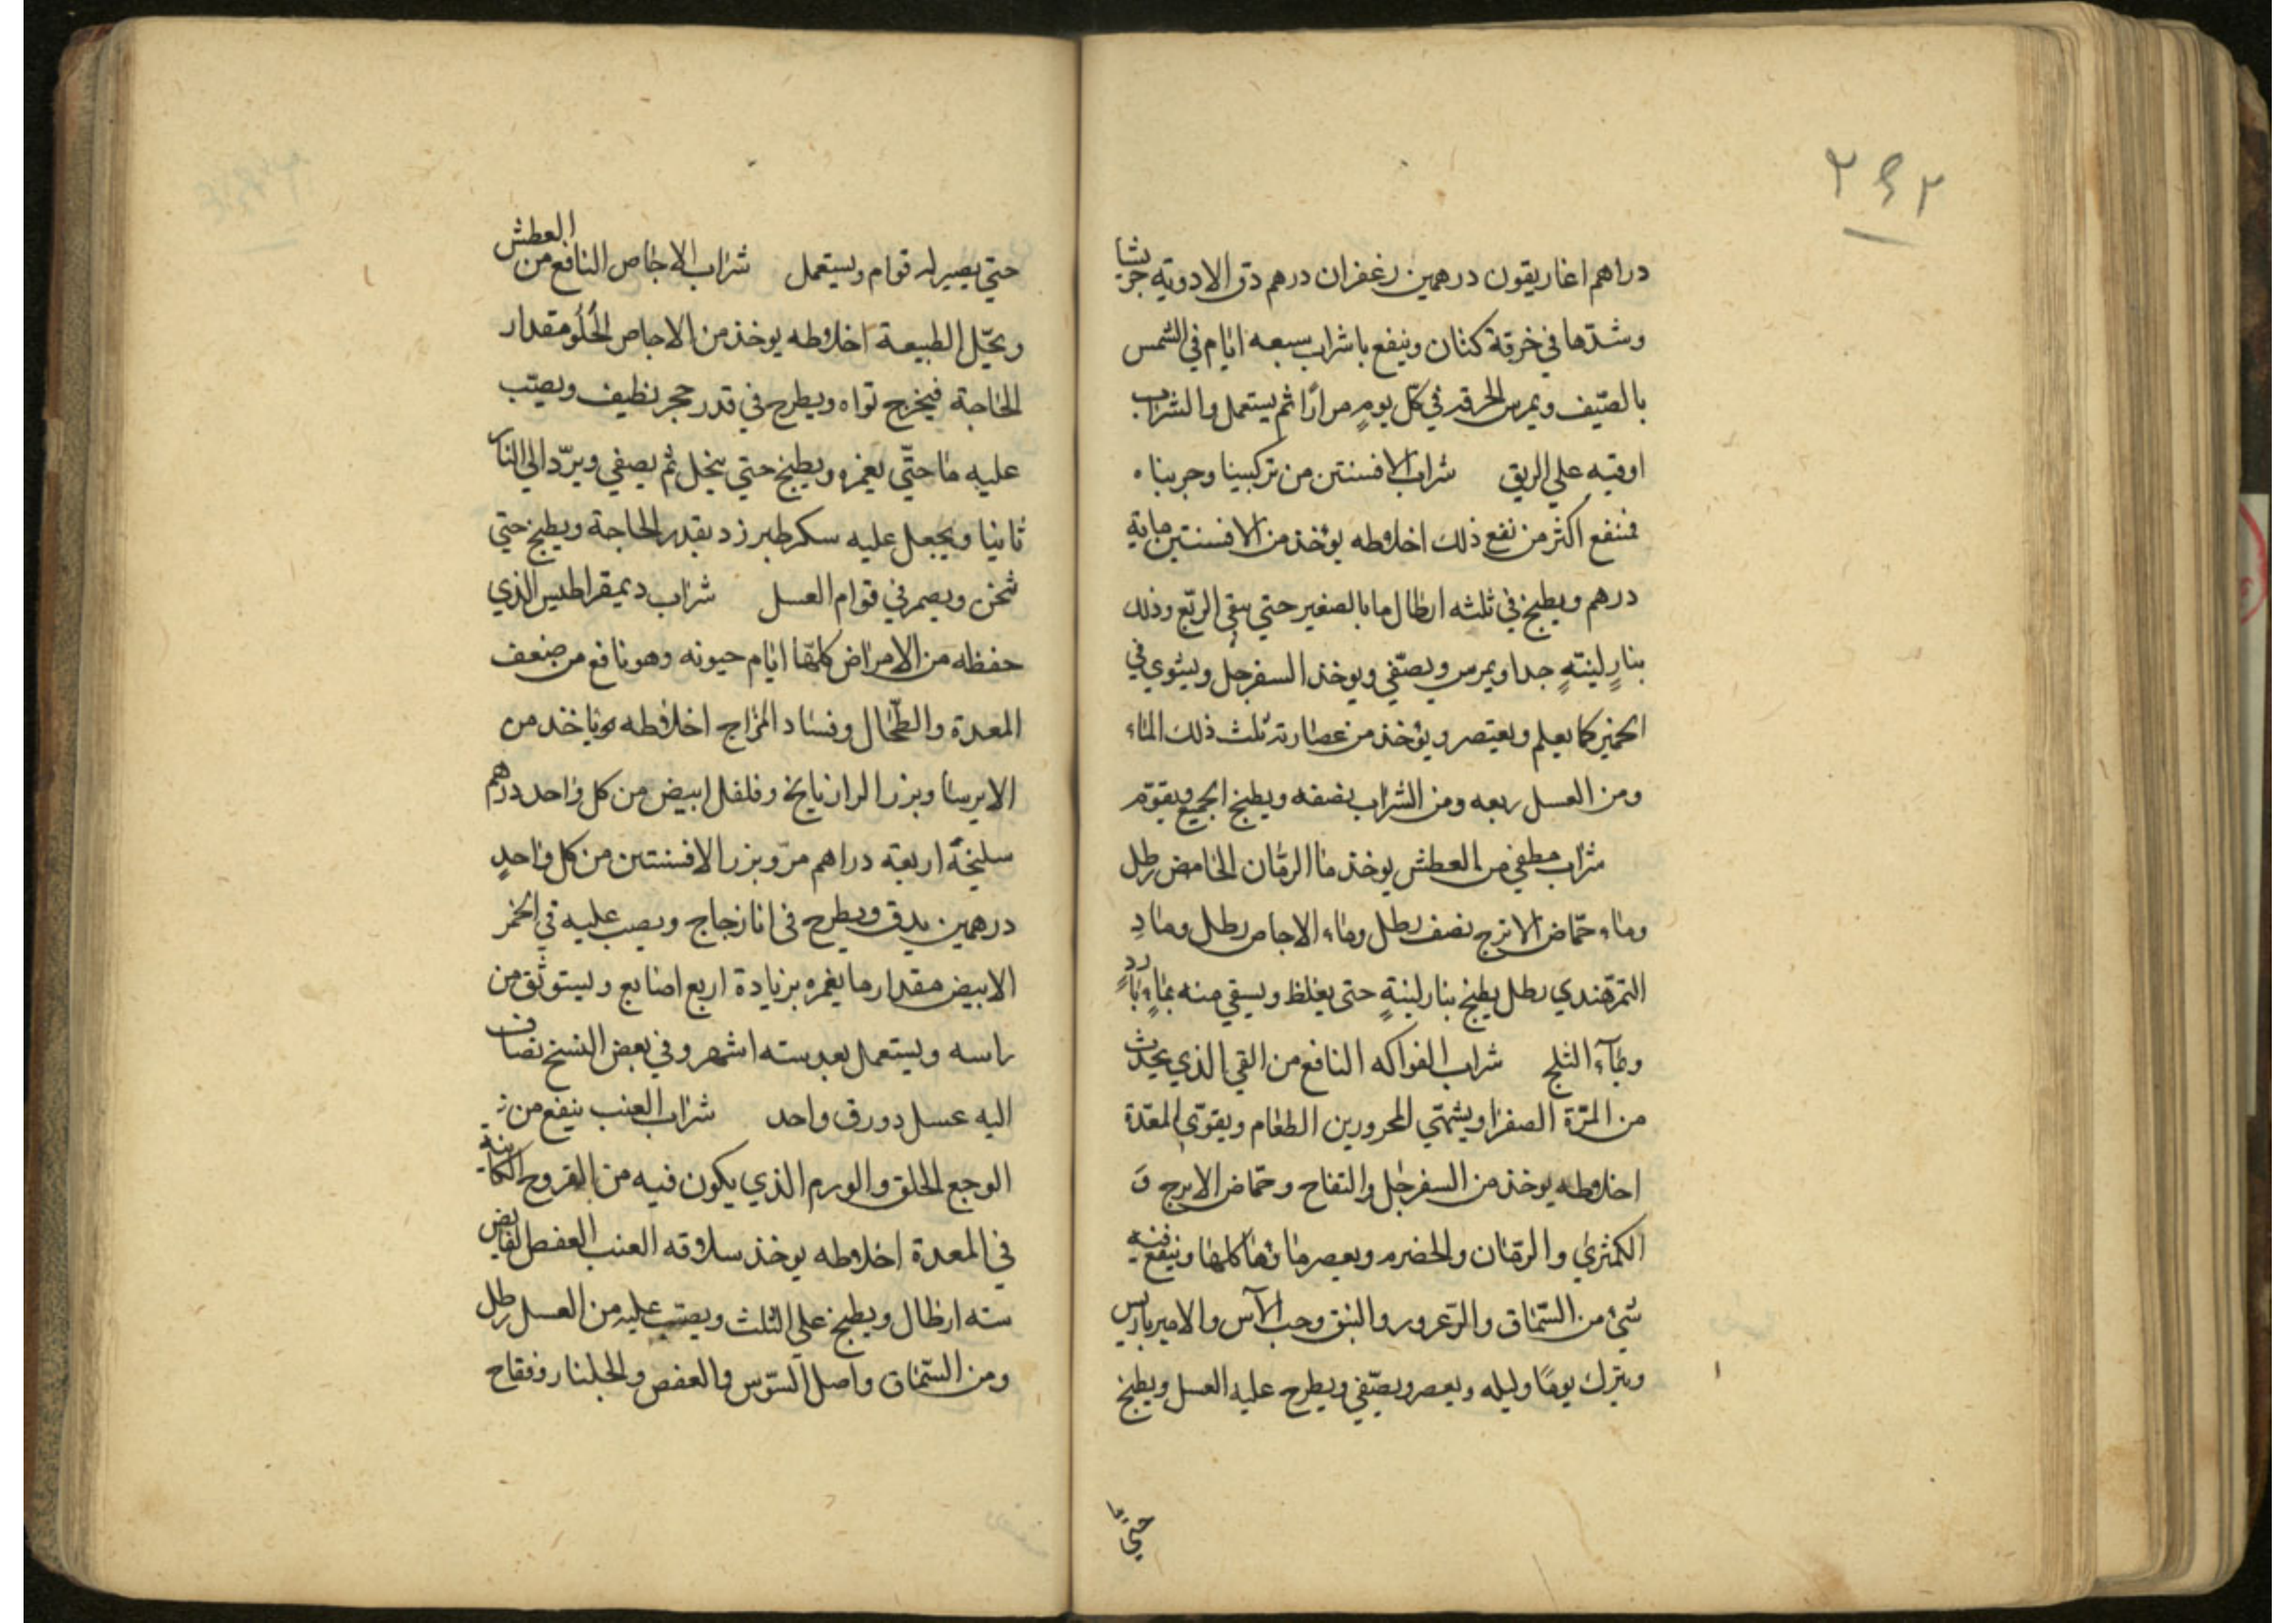 ٢٤٢
دراهم اغاريقون درهمين زعفران درهم دق الادوية جريشا
وشدّها في خرقة كتان وينفع باشراب سبعه ايّام في الشمس
بالصّيف ويمرس الخرقه في كلّ يومٍ مرارًا ثم يستعمل والشراب
اوقيه علي الريق شراب الافسنتن من تركيبنا وجربناه
فنفع اكثر من نفع ذلك اخلاطه يؤخذ من الافسنتين ماية
درهم ويطبخ في ثلثه ارطال ما بالصغير حتي يبقي الربّع وذلك
بنارٍ لينتهٍ جدا ويمرس ويصّفي ويوخذ السفرجل ويشوي في
الخمير كما يعلم ويعتصر ويؤخذ من عصارته ثلث ذلك الماء
ومن العسل ربعه ومن الشراب نصفه ويطبخ الجميع ويقوّم
شراب مطفي من العطش يوخذ ما الرمّان الحامض رطل
وماء حمّاض الاترج نصف رطل وماء الاجاص رطل وما دِ
التمرهندي رطل يطبخ بنار لينةٍ حتي يغلظ ويسقي منه بماءٍ باردٍ
وبمآء الثلج شراب الفواكه النافع من القي الذي يحدث
من المرّة الصفرا ويشهّي المحرورين الطعام ويقوّي المعدة
اخلاطه يوخذ من السفرجل والتفاح وحمّاض الاترج وَ
الكمثري والرمّان والحضرم ويعصر ماؤها كلها وينقع فيه
شئ من السّماق والزعرور والنبق وحب الآس والامبرباريس
ويترك يومًا وليله ويعصر ويصّفي ويطرح عليه العسل ويطبخ
حتي
حتي يصير له قوام ويستعمل شراب الاجاص النافع من العطش
ويحّيل الطبيعة اخلاطه يوخذ من الاجاص الحُلُو مقدار
الحاجة فيخرج نواه ويطرح في قدر حجر نظيف ويصّب
عليه ما حتّي يغمره ويطبخ حتي ينحل ثم يصفي ويردّ الي النار
ثانيا ويجعل عليه سكر طبرزد بقدر الحاجة ويطبخ حتي
ثخن ويصير في قوام العسل شراب ديمقراطيس الذي
حفظه من الامراض كلهّا ايام حيوته وهو نافع من ضعف
المعدة والطّحال وفساد المزاج اخلاطه يوخذ من
الايرسا وبزر الرازيانج وفلفل ابيض من كل واحد درهم
سليخةً اربعة دراهم مرّ وبزر الافسنتين من كل واحدٍ
درهمين يدق ويطرح في انا زجاج ويصب عليه في الخمر
الابيض مقدار ما يغمره بزيادة اربع اصابع ويستوثق من
راسه ويستعمل بعد سته اشهر وفي بعض النسخ تضاف
اليه عسل دورق واحد شراب العنب ينفع من
الوجع الحلق والورم الذي يكون فيه من القروح الكاينة
في المعدة اخلاطه يوخذ سلاقه العنب العفص القابض
سته ارطال ويطبخ علي الثلث ويصّب عليه من العسل رطل
ومن السّماق واصل السّوس والعفص والجلنار وفقاح